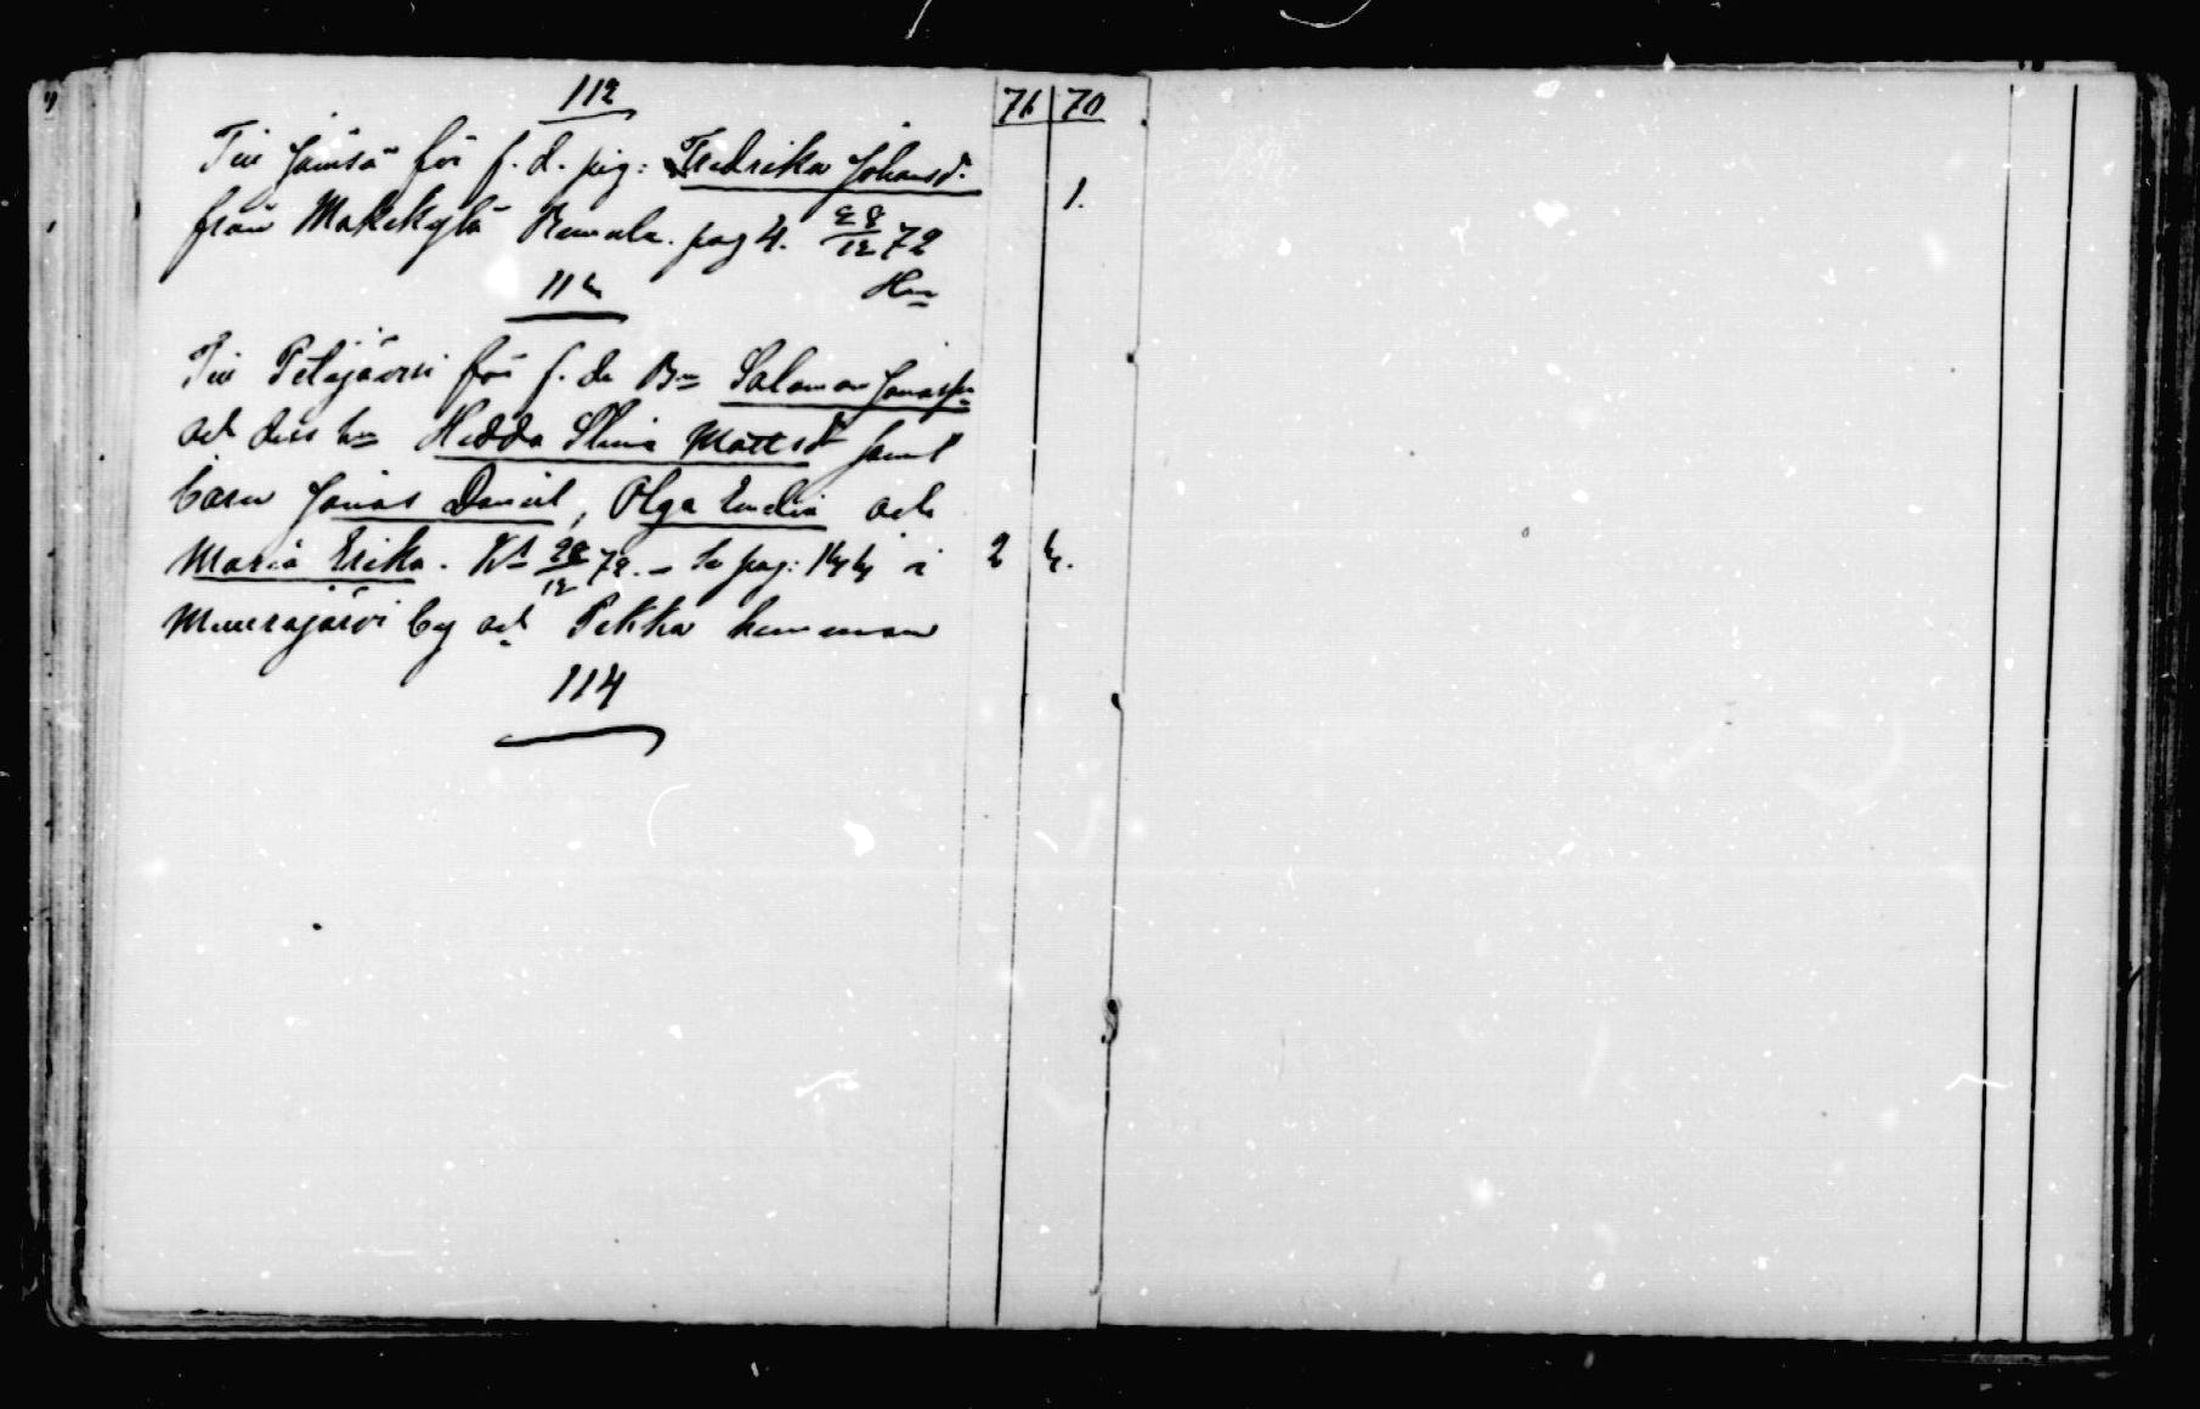 112
76 70
Till Jämsä för f. d. pig: Fredrika Johansd.
1.
från Makikylä pag 4. 28/12 72
113
Till Petäjävesi för f. d. Bn Salomon Jonass:
och dess h: Hedda Stina Mattsd samt
barn Jonas Daniel, Olga Emelia och
Maria Erika. 28/12 72. – Se pag: i 2 3.
Muurasjärvi by och Pekka hemman
114